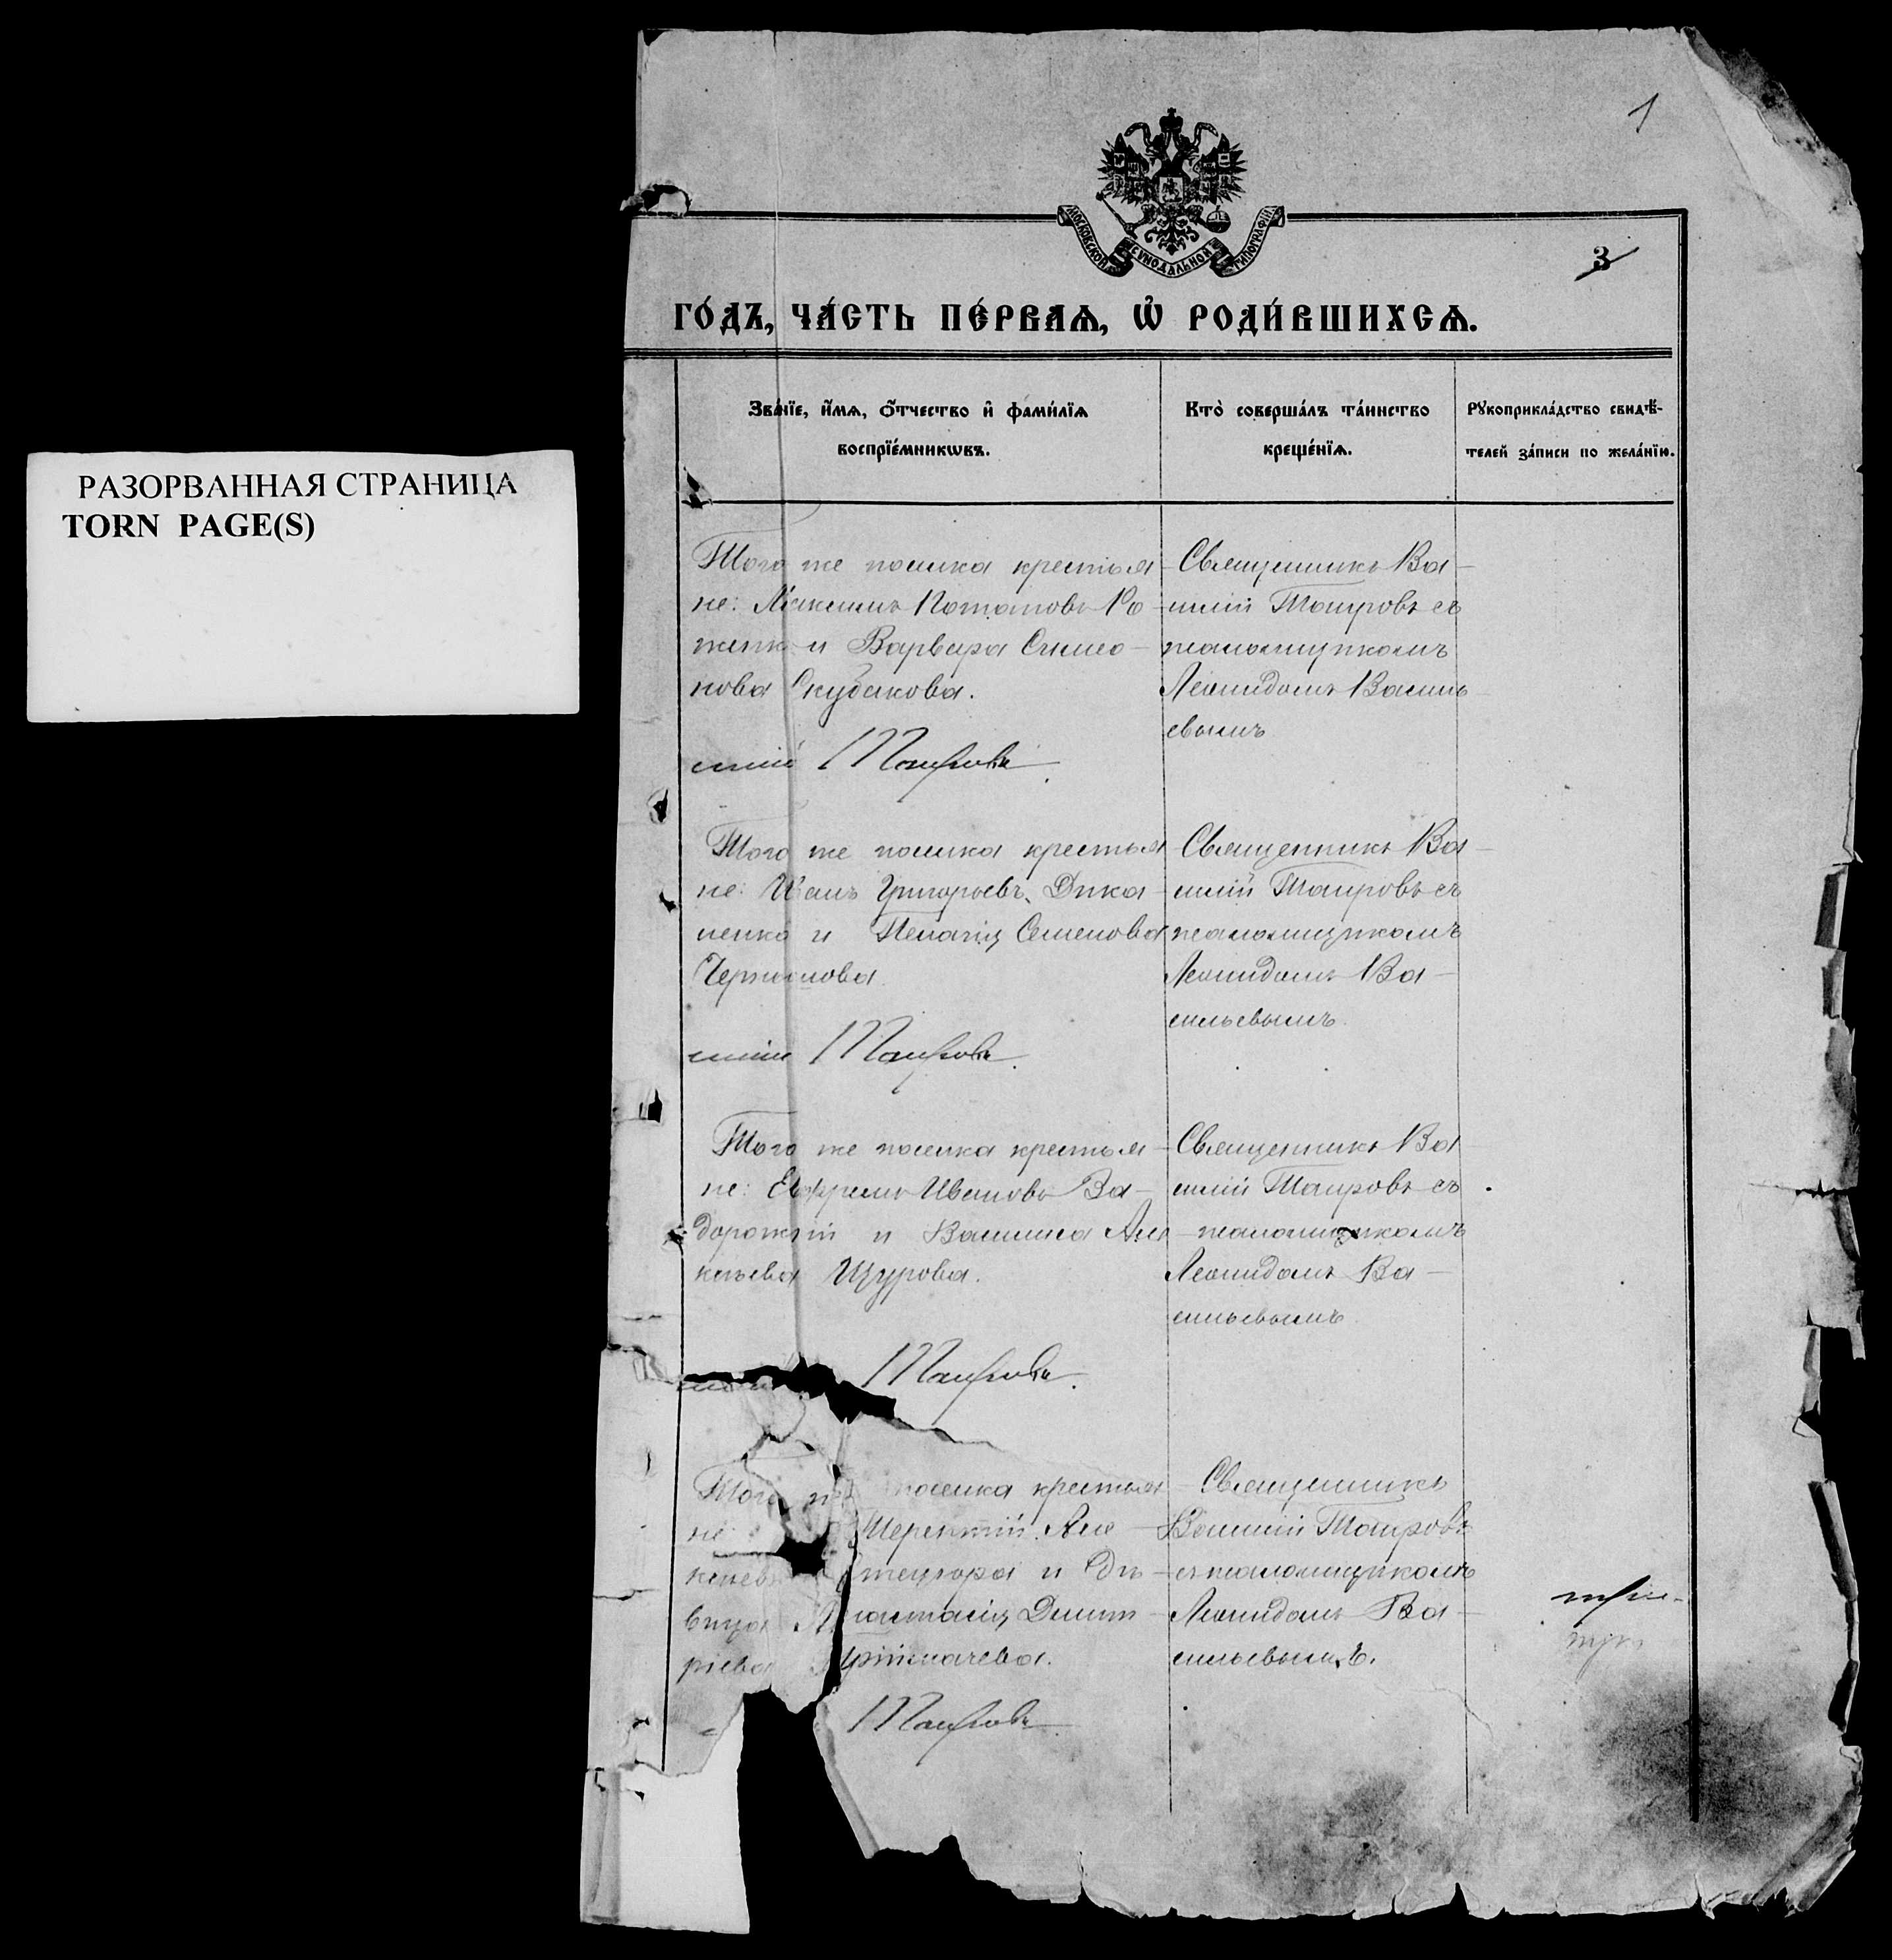 1
МОСКОВСКОЙ СѴНОДАЛЬНОЙ ТИПОГРАФІИ
3
ГО́ДЪ, ЧА́СТЬ ПЕ́РВАѦ, Ѡ҆ РОДИ́ВШИХСѦ.
Зва́нїе, и҆́мѧ, ѻ҆́тчество и҆ фами́лїѧ
воспрїе́мникѡвъ.
Кто̀ соверша́лъ та́инство
креще́нїѧ.
Рꙋкоприкла́дство свидѣ́-
телей за́писи по жела́нїю.
РАЗОРВАННАЯ СТРАНИЦА
TORN PAGE(S)
Того же поселка крестья
не: Максимъ Потаповъ
и Варвара Симео-
нова Скубакова.
силій Таировъ.
Священникъ Ва-
силій Таировъ съ
псаломщикомъ
Леонидомъ Василь
евымъ
Того же поселка крестья
не: Иванъ Григорьевъ Дика
ненко и Пелагія Семенова
силій Таировъ.
Священникъ Ва-
силій Таировъ съ
псаломщикомъ
Леонидомъ Ва-
сильевымъ.
Того же поселка крестья-
не: Евфремъ Ивановъ За-
дорожній и Василиса Але
ксѣева Щурова.
Таировъ.
Священникъ Ва-
силій Таировъ съ
псаломщикомъ
Леонидомъ Ва-
сильевымъ.
Того поселка крестья
не Терентій Але-
и дѣ-
вица Анастасія Димит-
ріева
Таировъ.
Священникъ
Василій Таировъ
съ псаломщикомъ
Леонидомъ Ва-
сильевымъ.